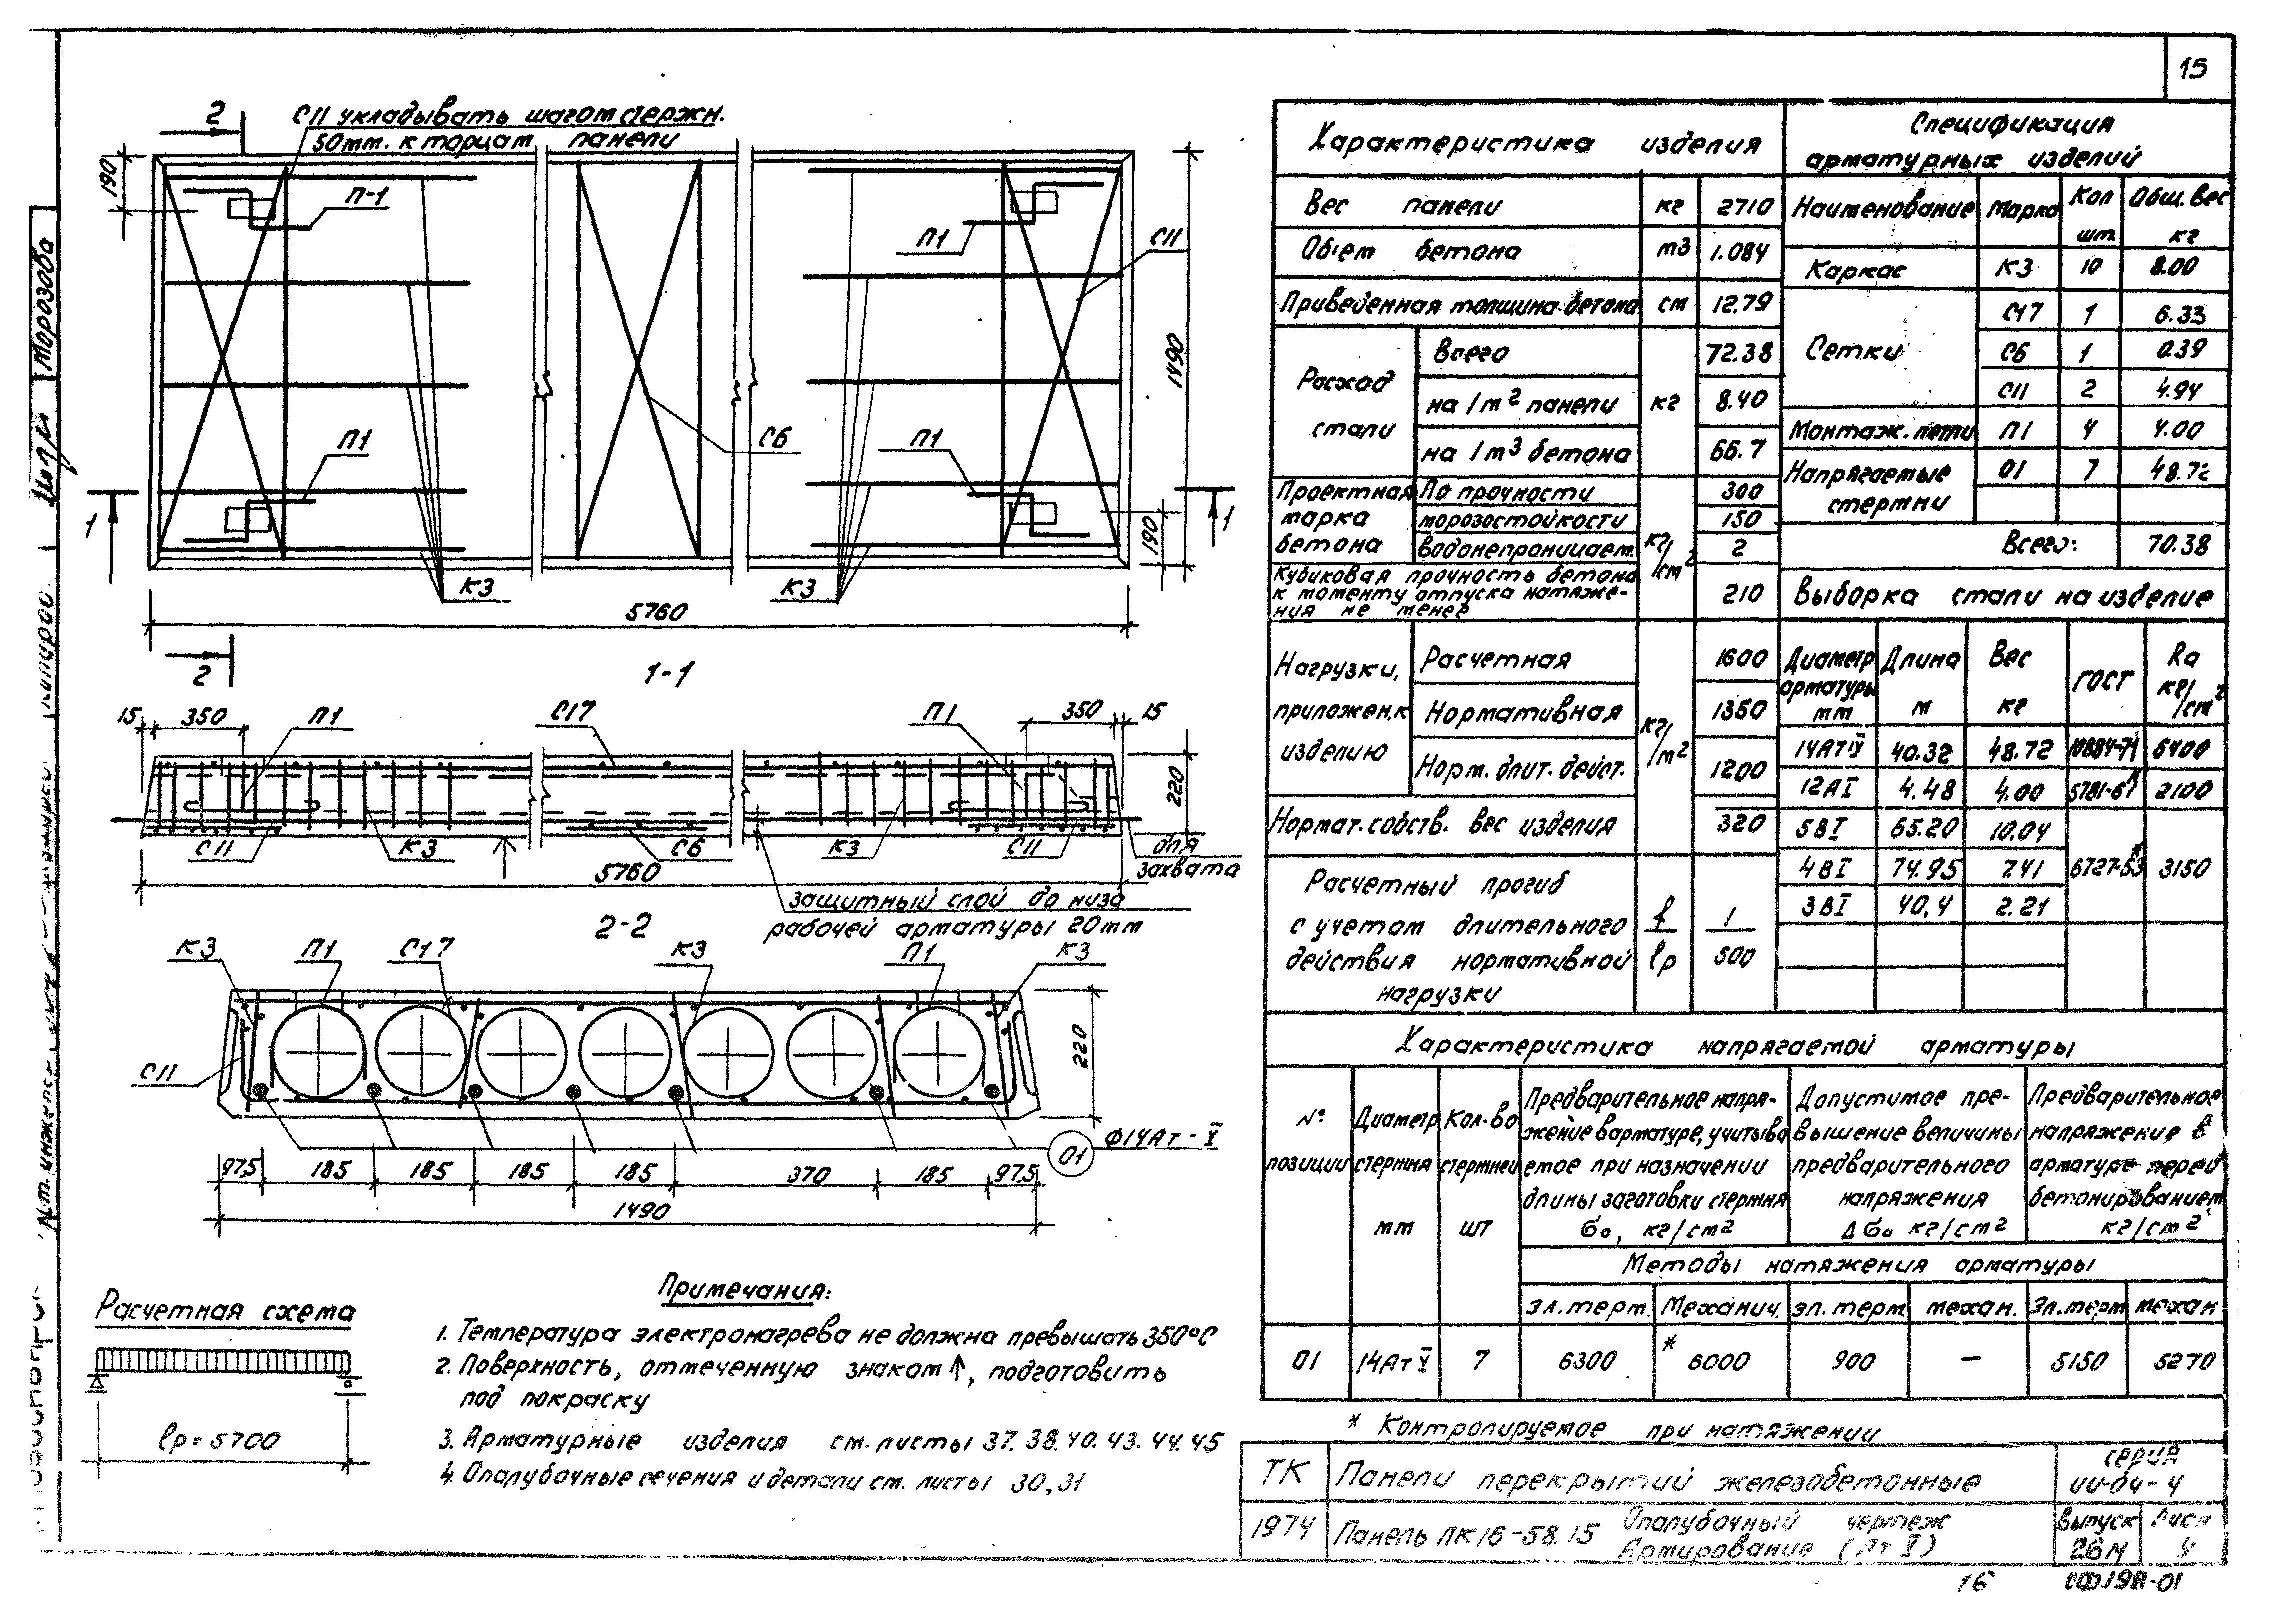 15
2
С11 укладывать шагом стержн.
50мм. к торцам панели
190
П-1
П1
С11
1490
П1
С6
П1
190
1
1
К3
К3
5760
2
1-1
15
350
П1
С17
П1
350
15
220
С11
К3
С6
К3
С11
для
захвата
5760
защитный слой до низа
рабочей арматуры 20мм
2-2
К3
П1
С17
К3
П1
К3
С11
220
01
Ф14Ат-V
97.5
185
185
185
185
370
185
97.5
1490
Расчетная схема
lр=5700
Примечания:
1. Температура электронагрева не должна превышать 350°С
2. Поверхность, отмеченную знаком ↑, подготовить
под покраску
3. Арматурные изделия см. листы 37. 38. 40. 43. 44. 45
4. Опалубочные сечения и детали см. листы 30, 31
Характеристика изделия
Вес панели кг 2710
Обьем бетона м3 1.084
Приведенная толщина бетона см 12.79
Расход стали кг
Всего 72.38
на 1м2 панели 8.40
на 1м3 бетона 66.7
Проектная марка бетона кг/см2
По прочности 300
морозостойкости 150
водонепроницаем. 2
Кубиковая прочность бетона
к моменту отпуска натяже-
ния не менее 210
Нагрузки, приложен. к изделию кг/м2
Расчетная 1600
Нормативная 1350
Норм. длит. дейст. 1200
Нормат. собств. вес изделия 320
Расчетный прогиб
с учетом длительного
действия нормативной
нагрузки
f/lр 1/500
Спецификация
арматурных изделий
Наименование Марка Кол шт. Общ. Вес кг
Каркас К3 10 8.00
Сетки С17 1 6.33
С6 1 0.39
С11 2 4.94
Монтаж. петли П1 4 4.00
Напрягаемые стержни 01 7 48.72
Всего: 70.38
Выборка стали на изделие
Диаметр арматуры мм Длина м Вес кг ГОСТ Rа кг/см2
14АтV 40.32 48.72 10884-71 6400
12АI 4.48 4.00 5781-61* 2100
5ВI 65.20 10.04
4ВI 74.95 7.41 6727-53* 3150
3ВI 40,4 2.21
Характеристика напрягаемой арматуры
№ позиции
Диаметр стержня мм
Кол-во стержней шт
Предварительное напря-
жение в арматуре, учитыва
емое при назначении
длины заготовки стержня
σо, кг/см2
Допустимое пре-
вышение величины
предварительного
напряжения
Δσо кг/см2
Предварительное
напряжение в
арматуре перед
бетонированием
кг/см2
Методы натяжения арматуры
эл.терм. Механич. эл.терм. механ. Эл.терм механ
01 14Ат V 7 6300 *6000 900 — 5150 5270
* Контролируемое при натяжении
ТК Панели перекрытий железобетонные
серия
ИИ-04-4
1974 Панель ПК16-58.15 Опалубочный чертеж
Армирование (Ат V)
Выпуск
26М
Лист
16
Морозова